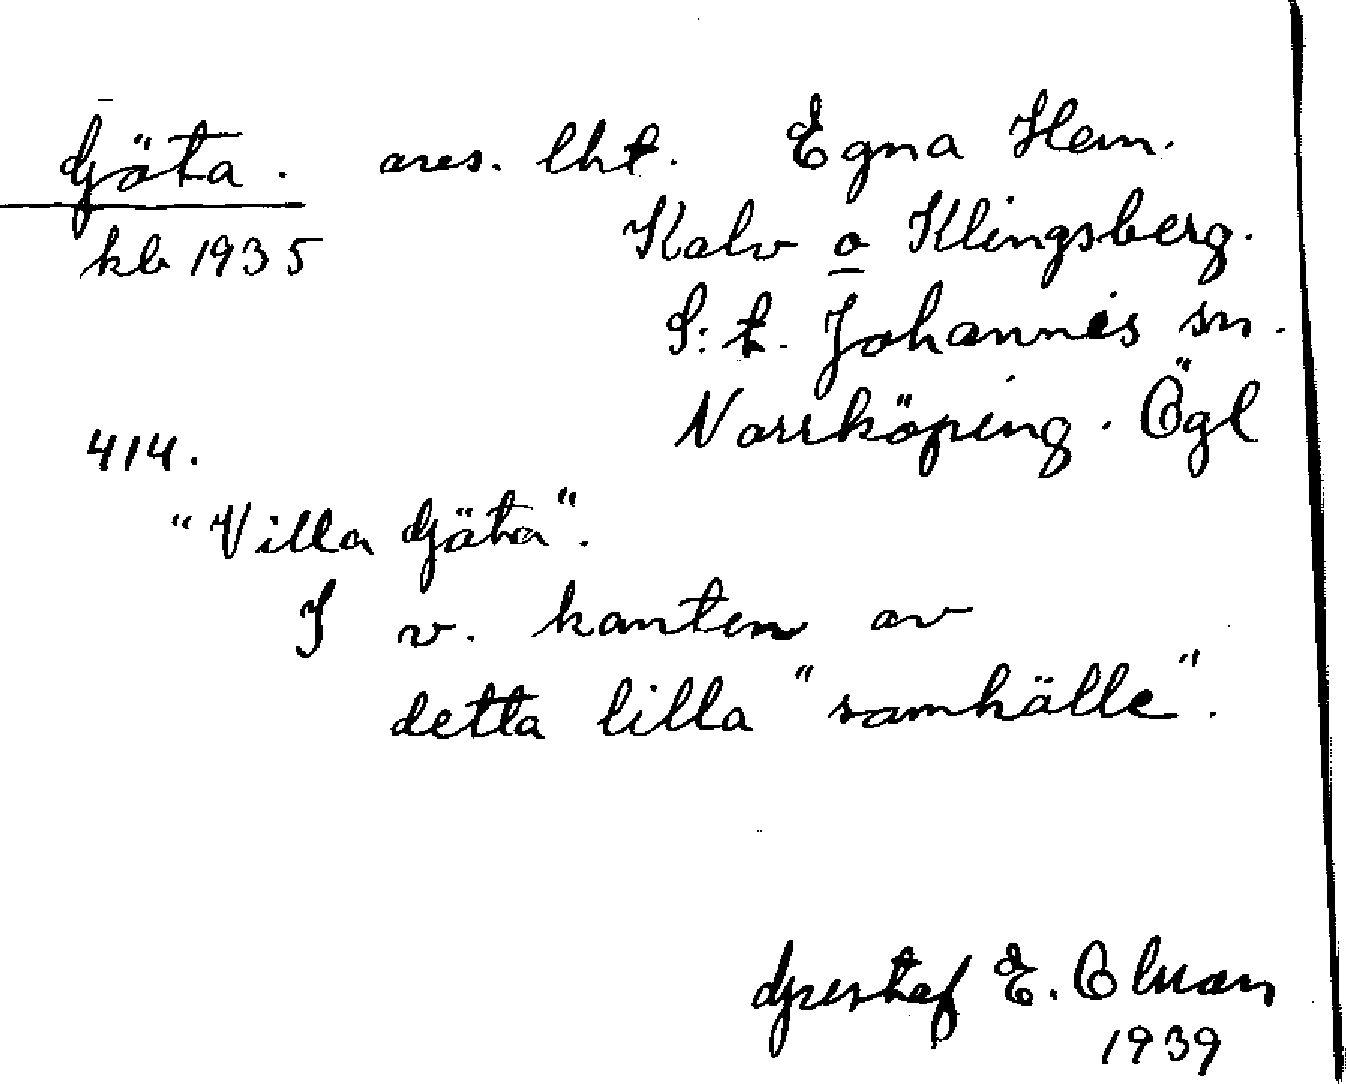 Göta. avs. lht. Egna Hem.
kb 1935 Kalv o Klingsberg.
S:t. Johannes sn.
414. Norrköping. Ögl
"Villa Göta".
I v. kanten av
detta lilla "samhälle".
Gustaf E. Olman
1939